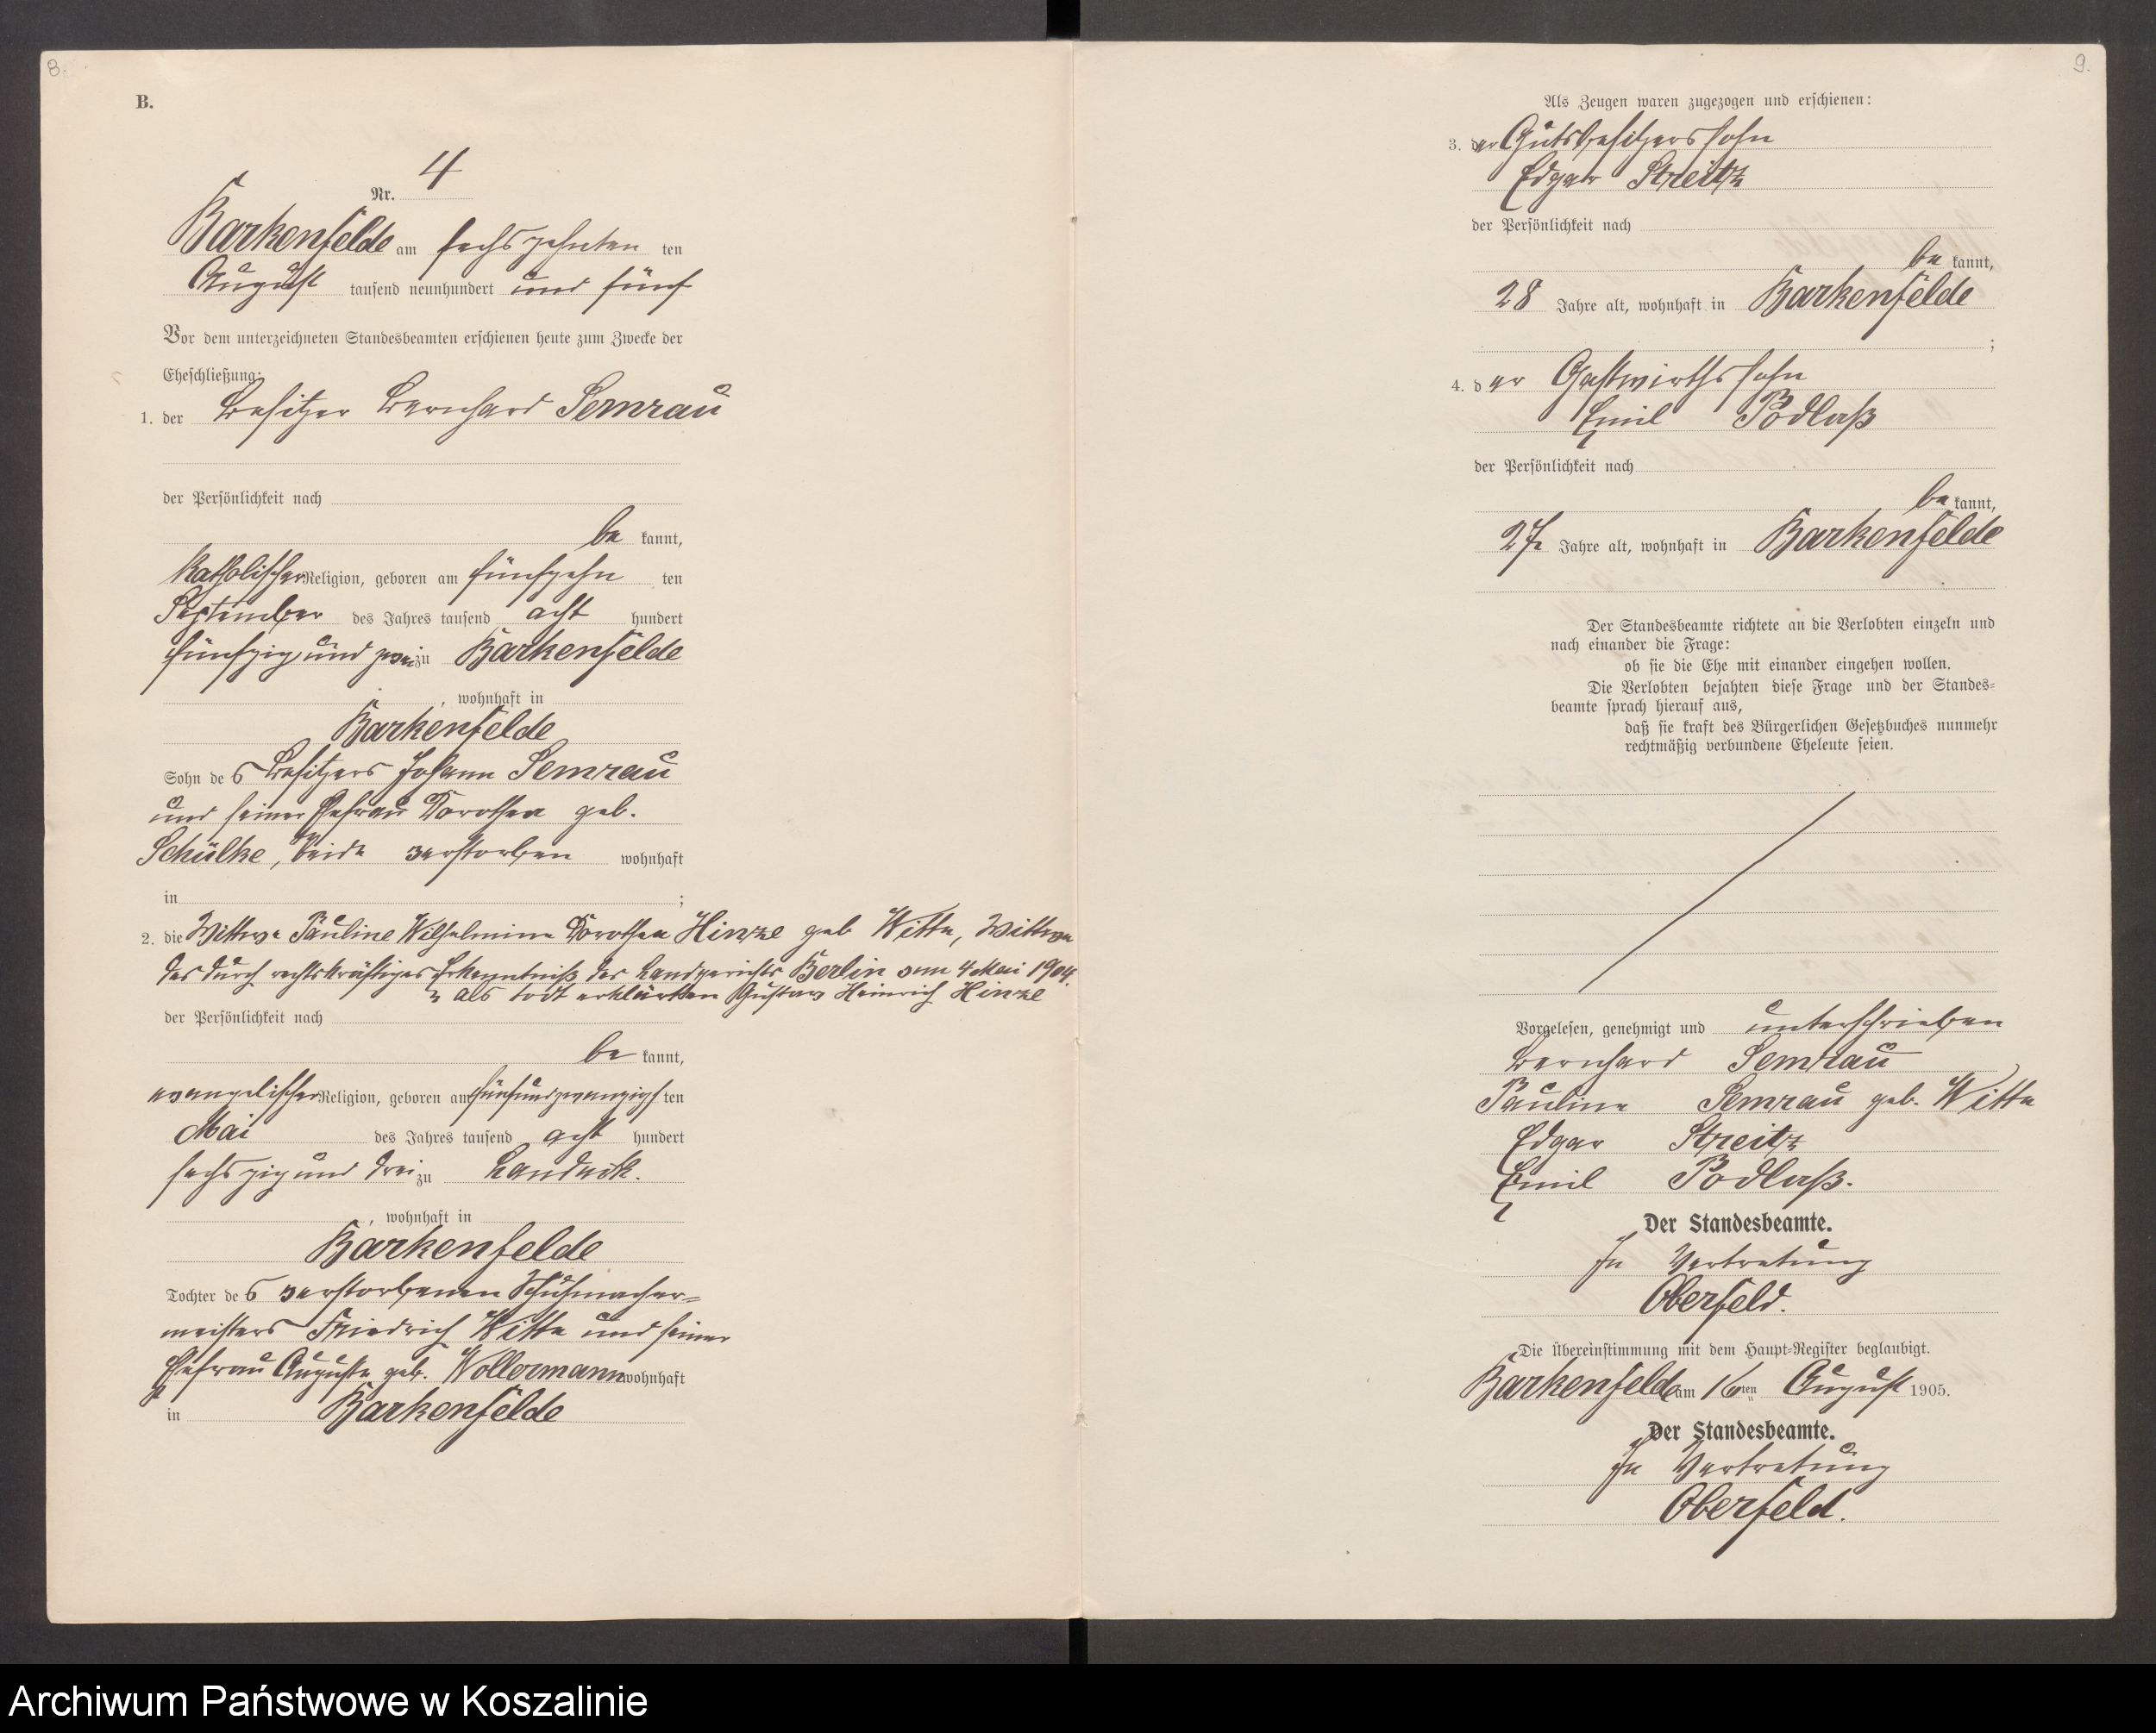 8.
B.
Nr. 4
Barkenfelde am sechszehnten ten
August tausend neunhundert und fünf
Vor dem unterzeichneten Standesbeamten erschienen heute zum Zwecke der
Eheschließung:
1. der Besitzer Bernhard Semrau
der Persönlichkeit nach
be kannt,
katholischer Religion, geboren am fünfzehn ten
September des Jahres tausend acht hundert
fünfzig und zwei zu Barkenfelde
, wohnhaft in
Barkenfelde
Sohn des Besitzers Johann Semrau
und seiner Ehefrau Dorothea geb.
Schülke, beide verstorben wohnhaft
in ;
2. die Wittwe Pauline Wilhelmine Dorothea Hinze geb Witte, Wittwe
des durch rechtskräftiges Erkenntniß des Landgerichts Berlin vom 4 Mai 1904.
als todt erklärten Gustav Heinrich Hinze
der Persönlichkeit nach
be kannt,
evangelischer Religion, geboren am fünfundzwanzigsten
Mai des Jahres tausend acht hundert
sechszig und drei zu Landeck.
, wohnhaft in
Barkenfelde
Tochter des verstorbenen Schuhmacher-
meisters Friedrich Witte und seiner
Ehefrau Auguste geb. Wollermann wohnhaft
in Barkenfelde
9.
Als Zeugen waren zugezogen und erschienen:
3. der Gutsbesitzerssohn
Edgar Streitz
der Persönlichkeit nach
be kannt,
28 Jahre alt, wohnhaft in Barkenfelde
;
4. der Gastwirthssohn
Emil Podlaß
der Persönlichkeit nach
be kannt,
27 Jahre alt, wohnhaft in Barkenfelde
Der Standesbeamte richtete an die Verlobten einzeln und
nach einander die Frage:
ob sie die Ehe mit einander eingehen wollen.
Die Verlobten bejahten diese Frage und der Standes-
beamte sprach hierauf aus,
daß sie kraft des Bürgerlichen Gesetzbuches nunmehr
rechtmäßig verbundene Eheleute seien.
Vorgelesen, genehmigt und unterschrieben
Bernhard Semrau
Pauline Semrau geb. Witte
Edgar Streitz
Emil Podlaß.
Der Standesbeamte.
In Vertretung
Oberfeld.
Die Übereinstimmung mit dem Haupt-Register beglaubigt.
Barkenfelde am 16ten August 1905.
Der Standesbeamte.
In Vertretung
Oberfeld.
Archiwum Państwowe w Koszalinie